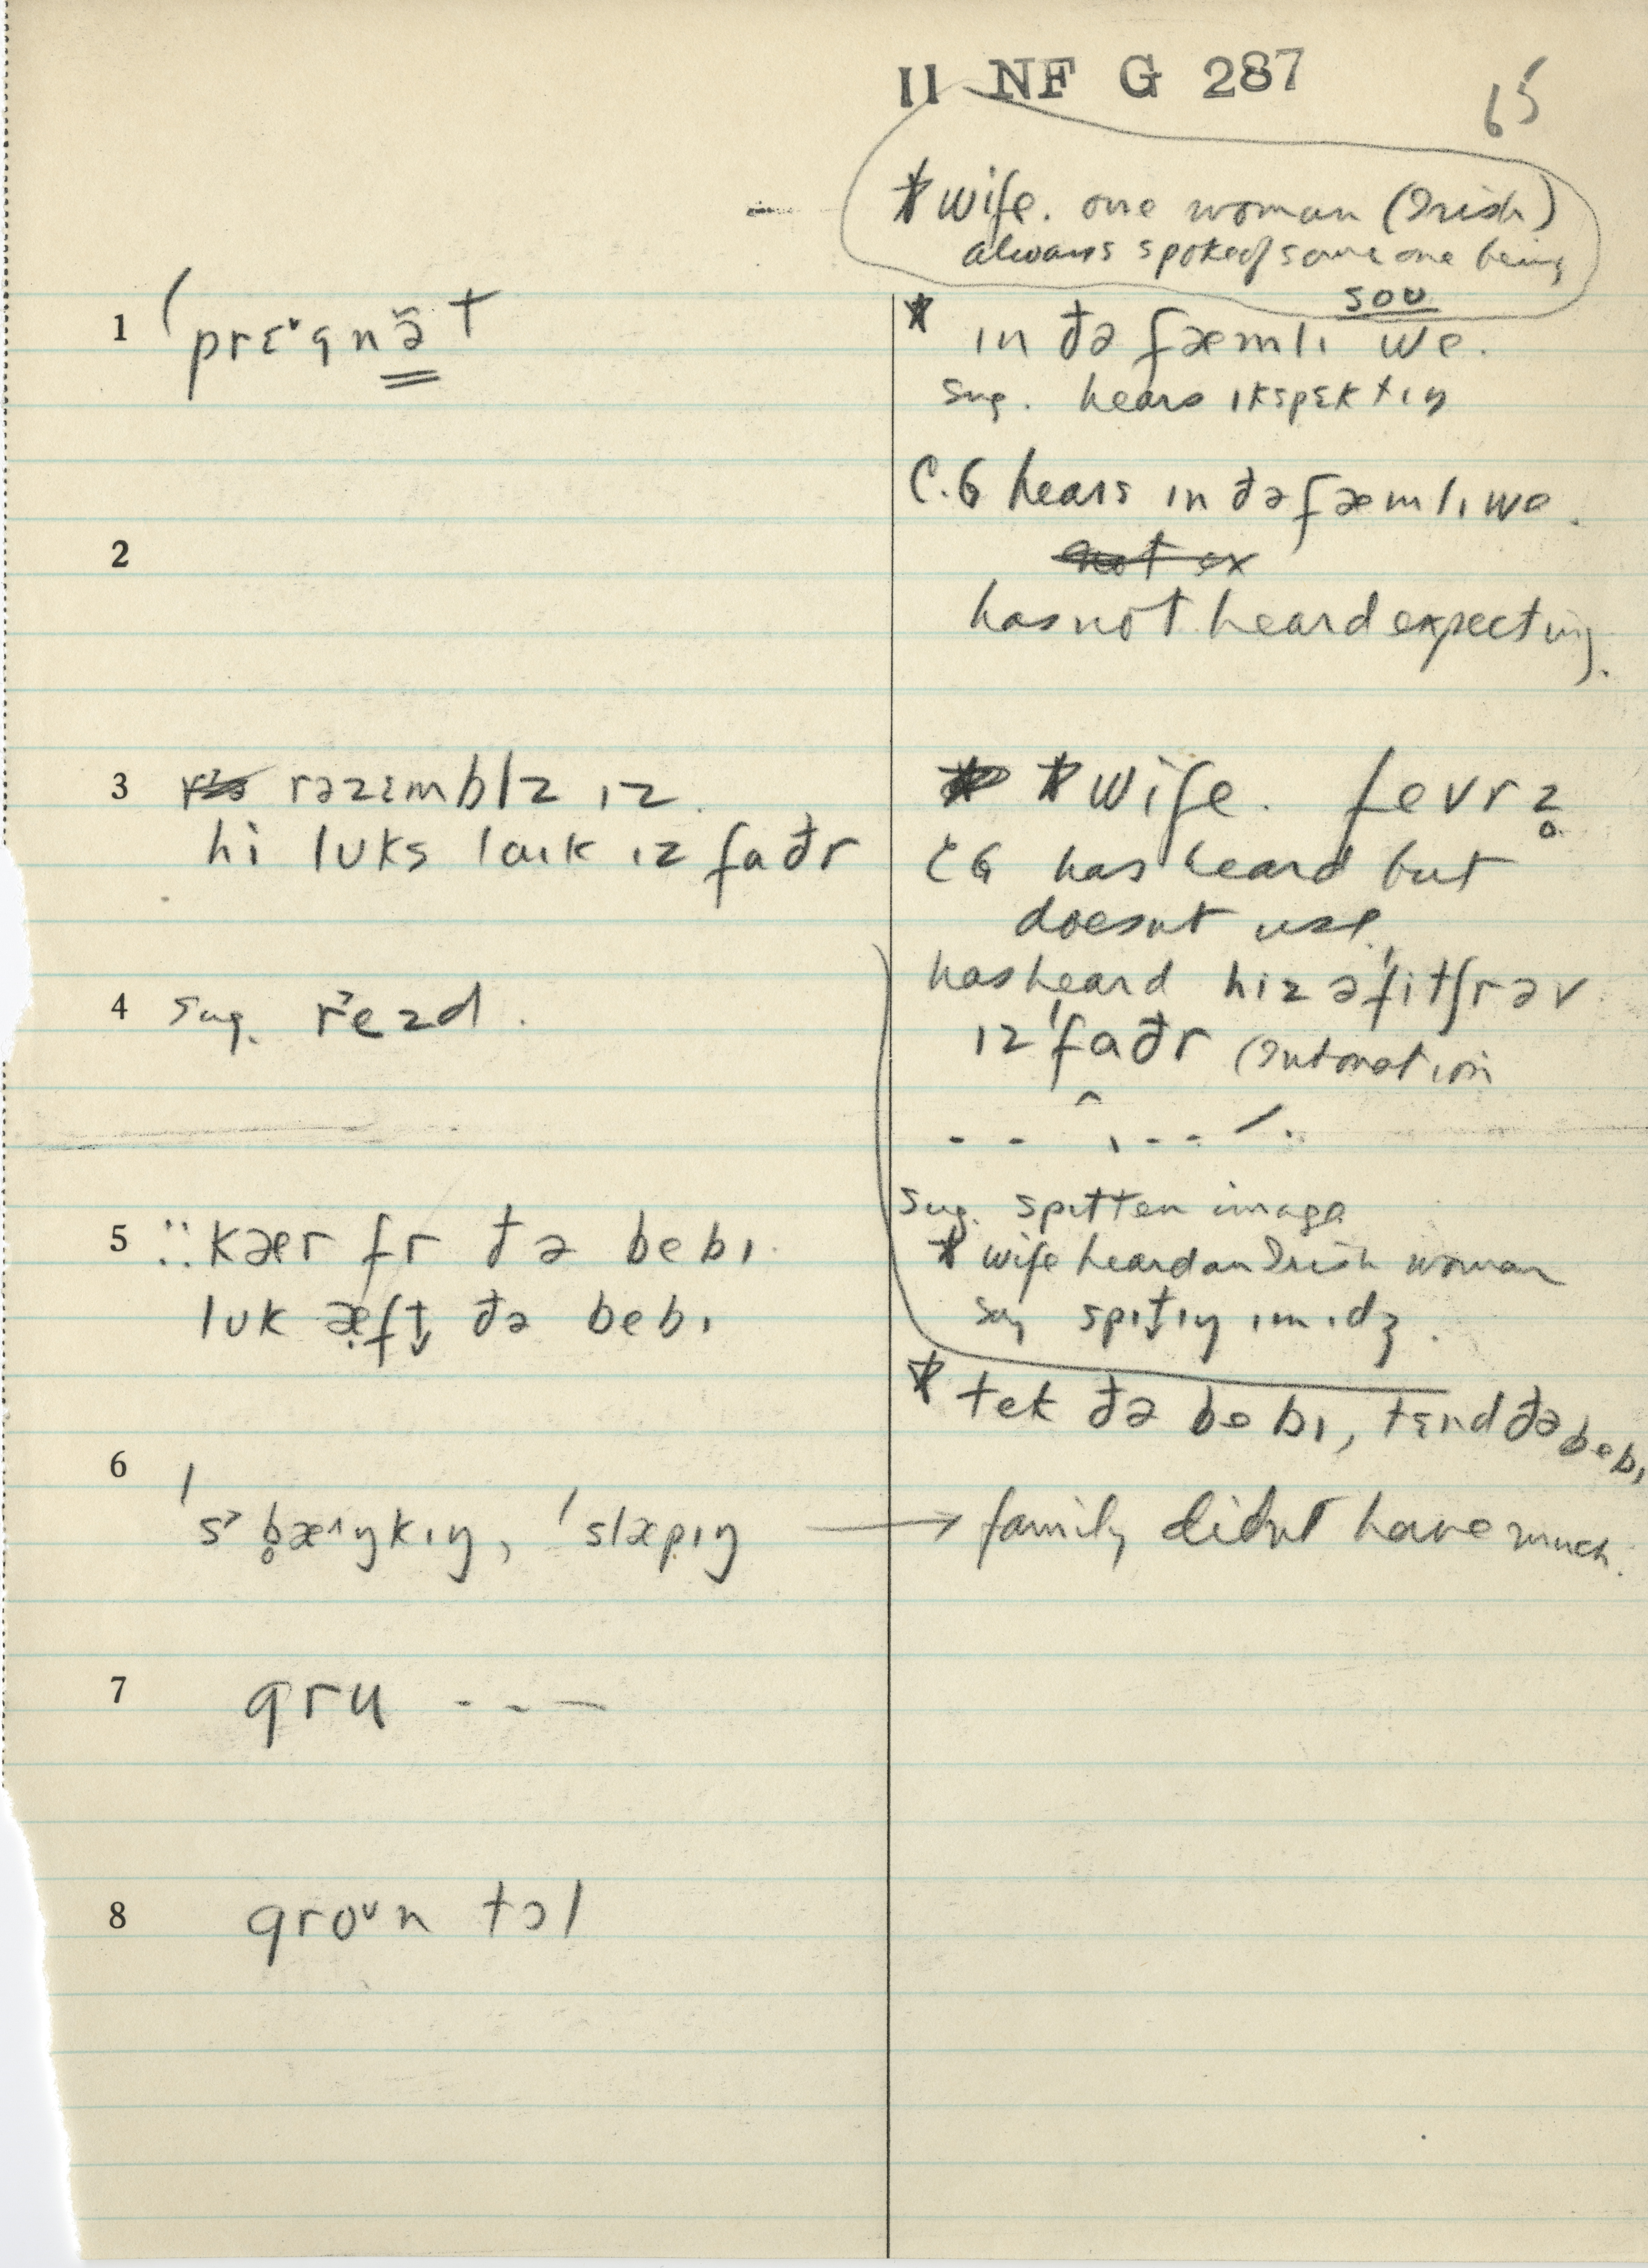 II NF G 287
65
* wife. one woman (Irish)
always spoke of someone being
soʊ
1 ˈprɛ˅gnə̃t
* ɪn ðə fæmlɪ we.
sug. hears ɪkspɛktɪŋ
C.G hears ɪn ðə fæmlɪ we.
2
not ex
has not heard expecting.
3 rəzɛmblz ɪz.
hi lʊks laɪk ɪz faðr
* wife. fevrz̥
CG has heard but
doesnt use.
4 sug. r˃ezd.
has heard hiz əˈfitʃr əv
ɪz ˈfaðr (Intonation
sug. spitten image
5 ∵ kær fr ðə bebɪ.
lʊk æ̣ft̬ ðə bebɪ
* wife heard an Irish woman
say spɪt̬ɪŋ ɪmɪdʒ.
* tek ðə bebɪ, tɛnd ðə bebɪ
6 ˈs˃b̥æ˄ŋkɪŋ, ˈslæpɪŋ → family didnt have much.
7 gru - - —
8 groᵛn tɔl